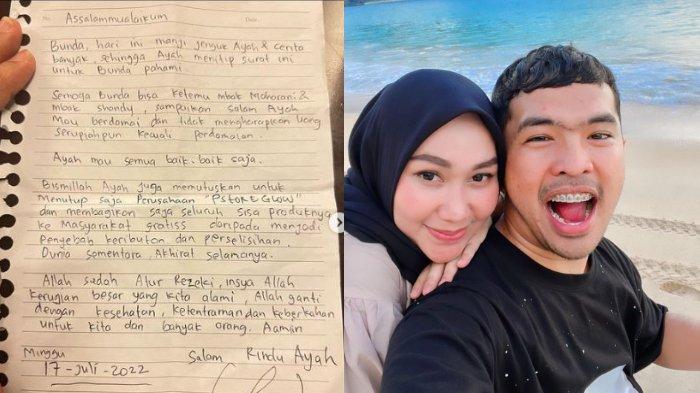 No:
Date:
Assalammualaikum
Bunda, hari ini manji jenguk Ayah & cerita
banyak, sehingga Ayah menitip surat ini
untuk Bunda pahami.
Semoga Bunda bisa ketemu mbak Maharani &
mbak shandy, sampaikan salam Ayah
Mau berdamai dan tidak mengharapkan Uang
serupiahpun kecuali perdamaian.
Ayah mau semua baik-baik saja.
Bismillah Ayah juga memutuskan untuk
Menutup saja Perusahaan "PStore Glow"
dan membagikan saja seluruh sisa produknya
ke Masyarakat gratiss daripada menjadi
Penyebab keributan dan perselisihan.
Dunia sementara, Akhirat selamanya.
Allah sudah Atur Rezeki, insya Allah
kerugian besar yang kita alami, Allah ganti
dengan kesehatan, ketentraman dan keberkahan
untuk kita dan banyak orang. Aamiin
Minggu
17-Juli-2022
Salam Rindu Ayah